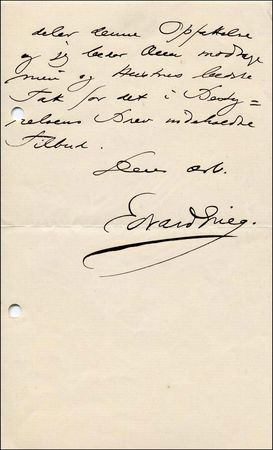 deler denne Opfattelse
og jeg beder Dem modtage
min og Hustrus bedste
Tak for det i Besty=
relsens Brev indeholdte
Tilbud.
Deres erb.
Edvard Grieg.